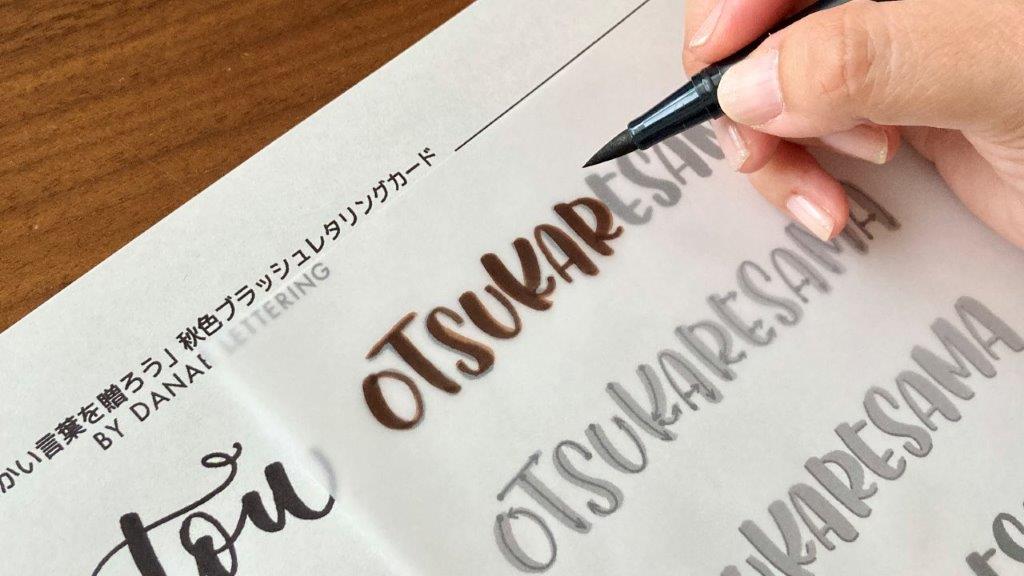 かい言葉を贈ろう」秋色ブラッシュレタリングカード
BY DANAE LETTERING
tou
OTSUKARESAM
OTSUKARESAMA
UKARESAMA